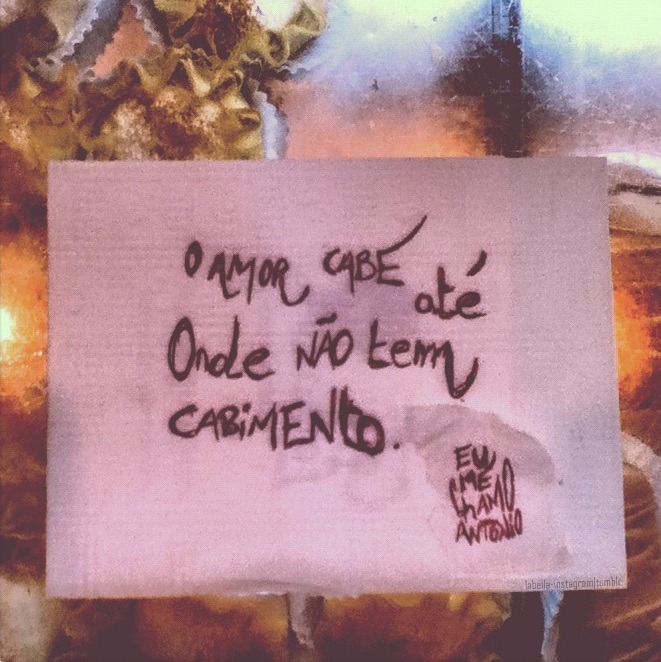 O AMOR CABE até
Onde NÃO tem
CABIMENto.
EU
ME
ChAMO
ANTÔNIO
labella-instagram|tumblr